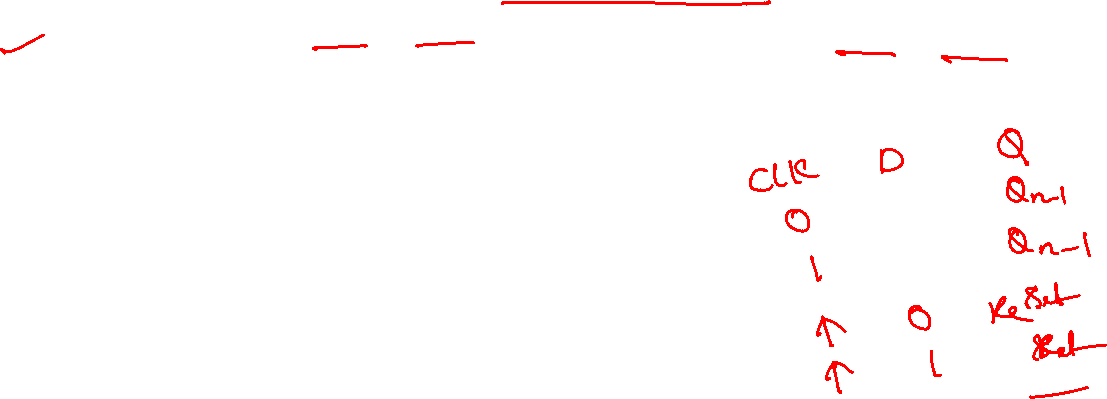 CLK D Q
0 Qn-1
1 Qn-1
↑ 0 Reset
↑ 1 Set